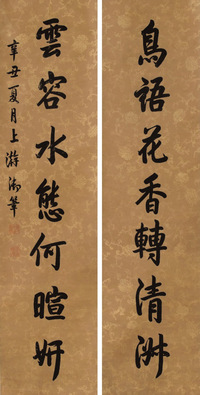 鳥語花香轉清淑
雲容水態何暄妍
辛丑夏月上澣御筆